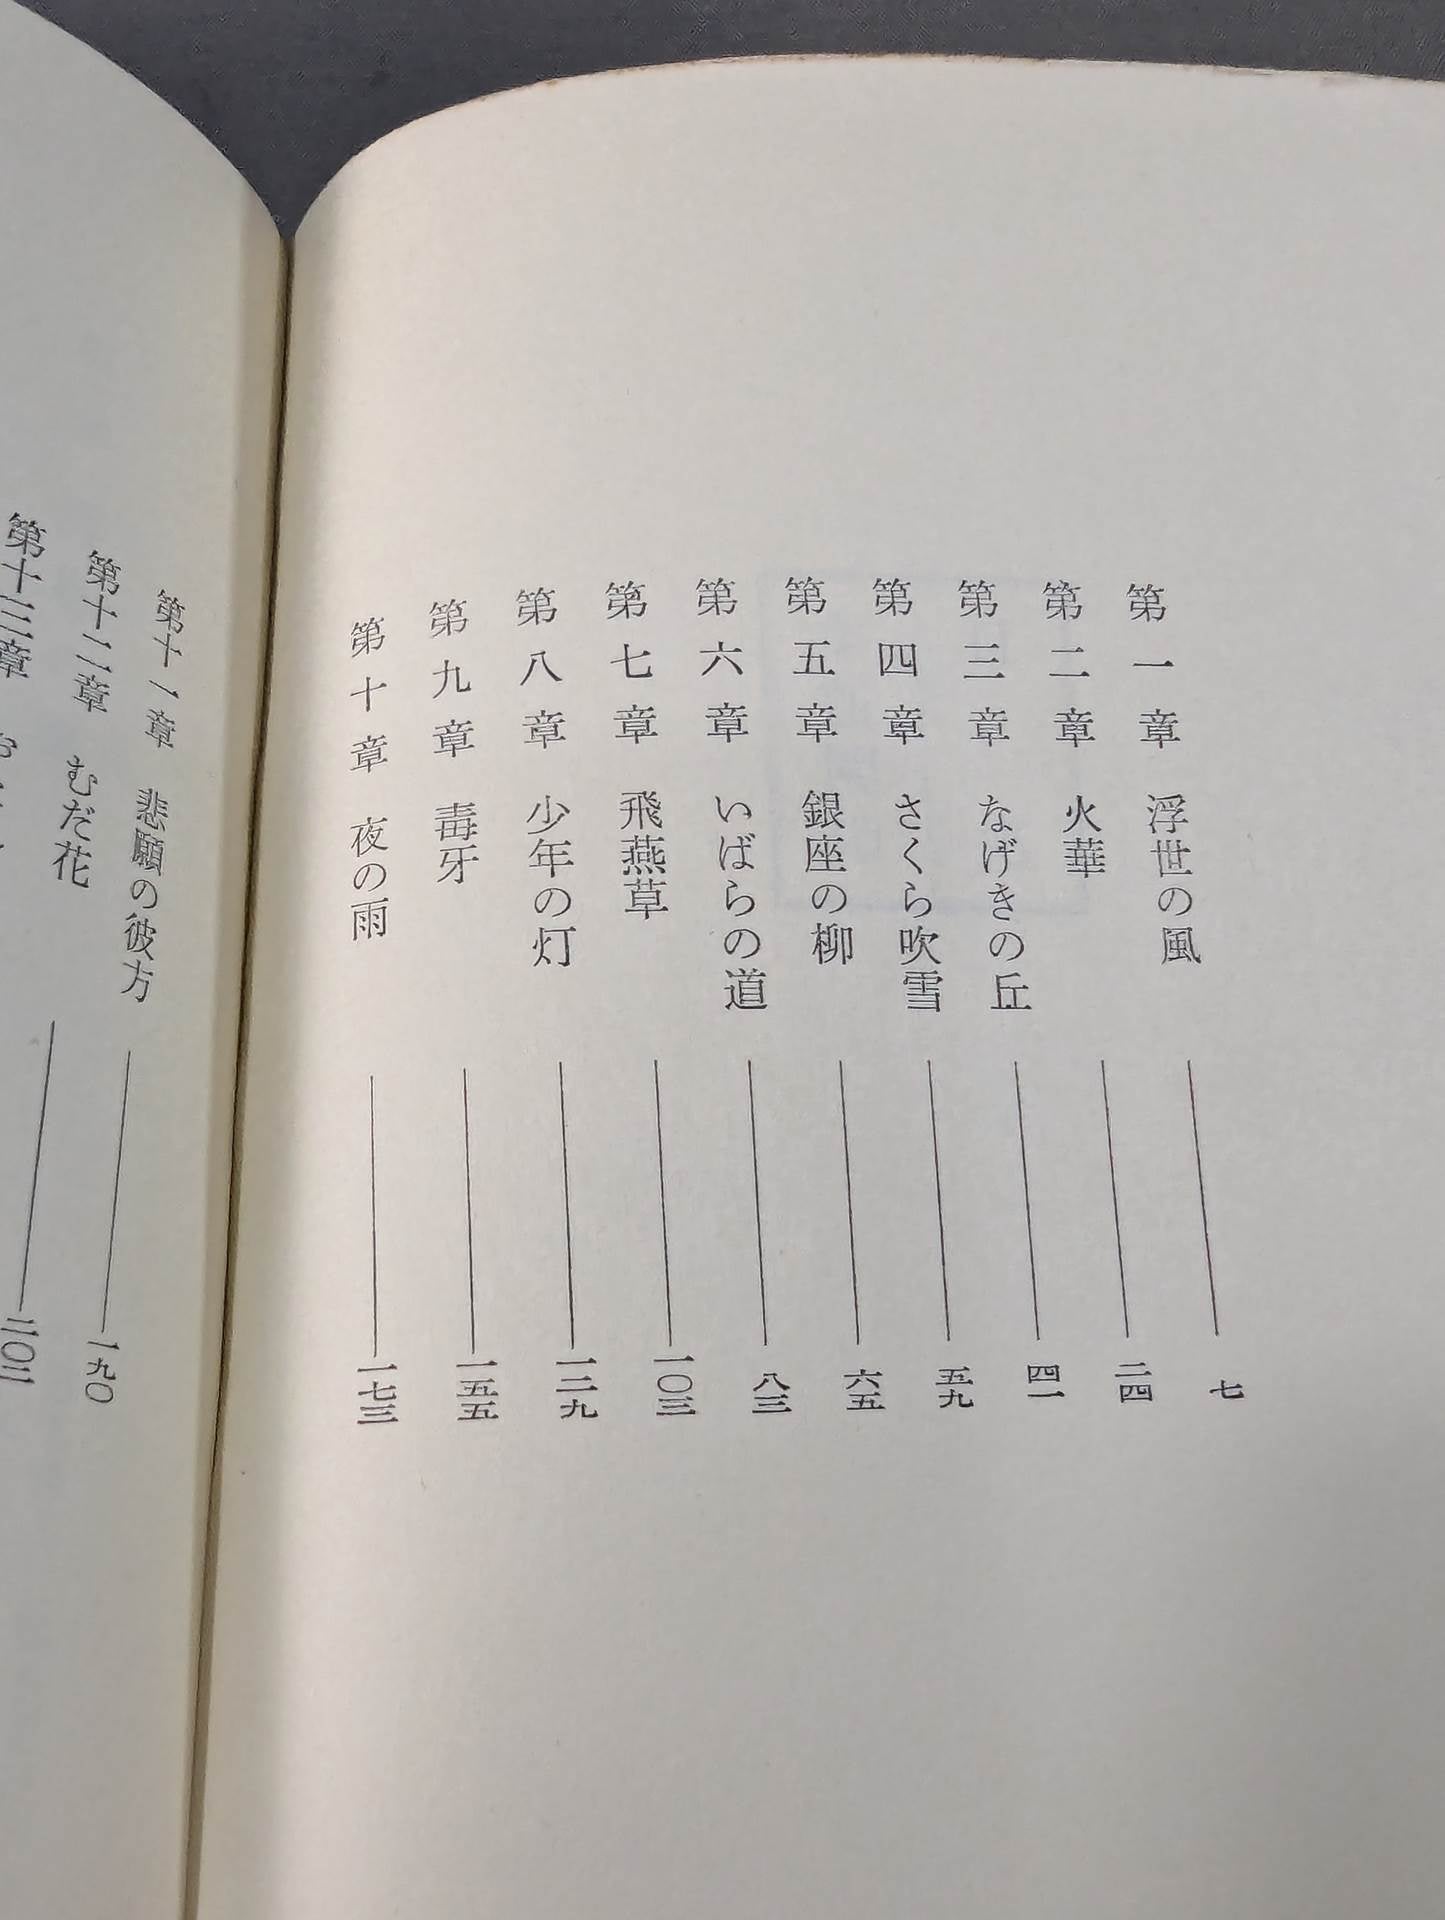 第一章　浮世の風――七
第二章　火華――二四
第三章　なげきの丘――四一
第四章　さくら吹雪――五九
第五章　銀座の柳――六五
第六章　いばらの道――八三
第七章　飛燕草――一〇三
第八章　少年の灯――一二九
第九章　毒牙――一五五
第十章　夜の雨――一七三
第十一章　悲願の彼方――一九〇
第十二章　むだ花――二〇三
第十三章